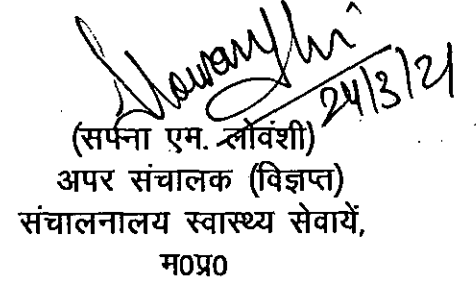 24/3/21
(सपना एम. लोवंशी)
अपर संचालक (विज्ञप्त)
संचालनालय स्वास्थ्य सेवायें,
म0प्र0